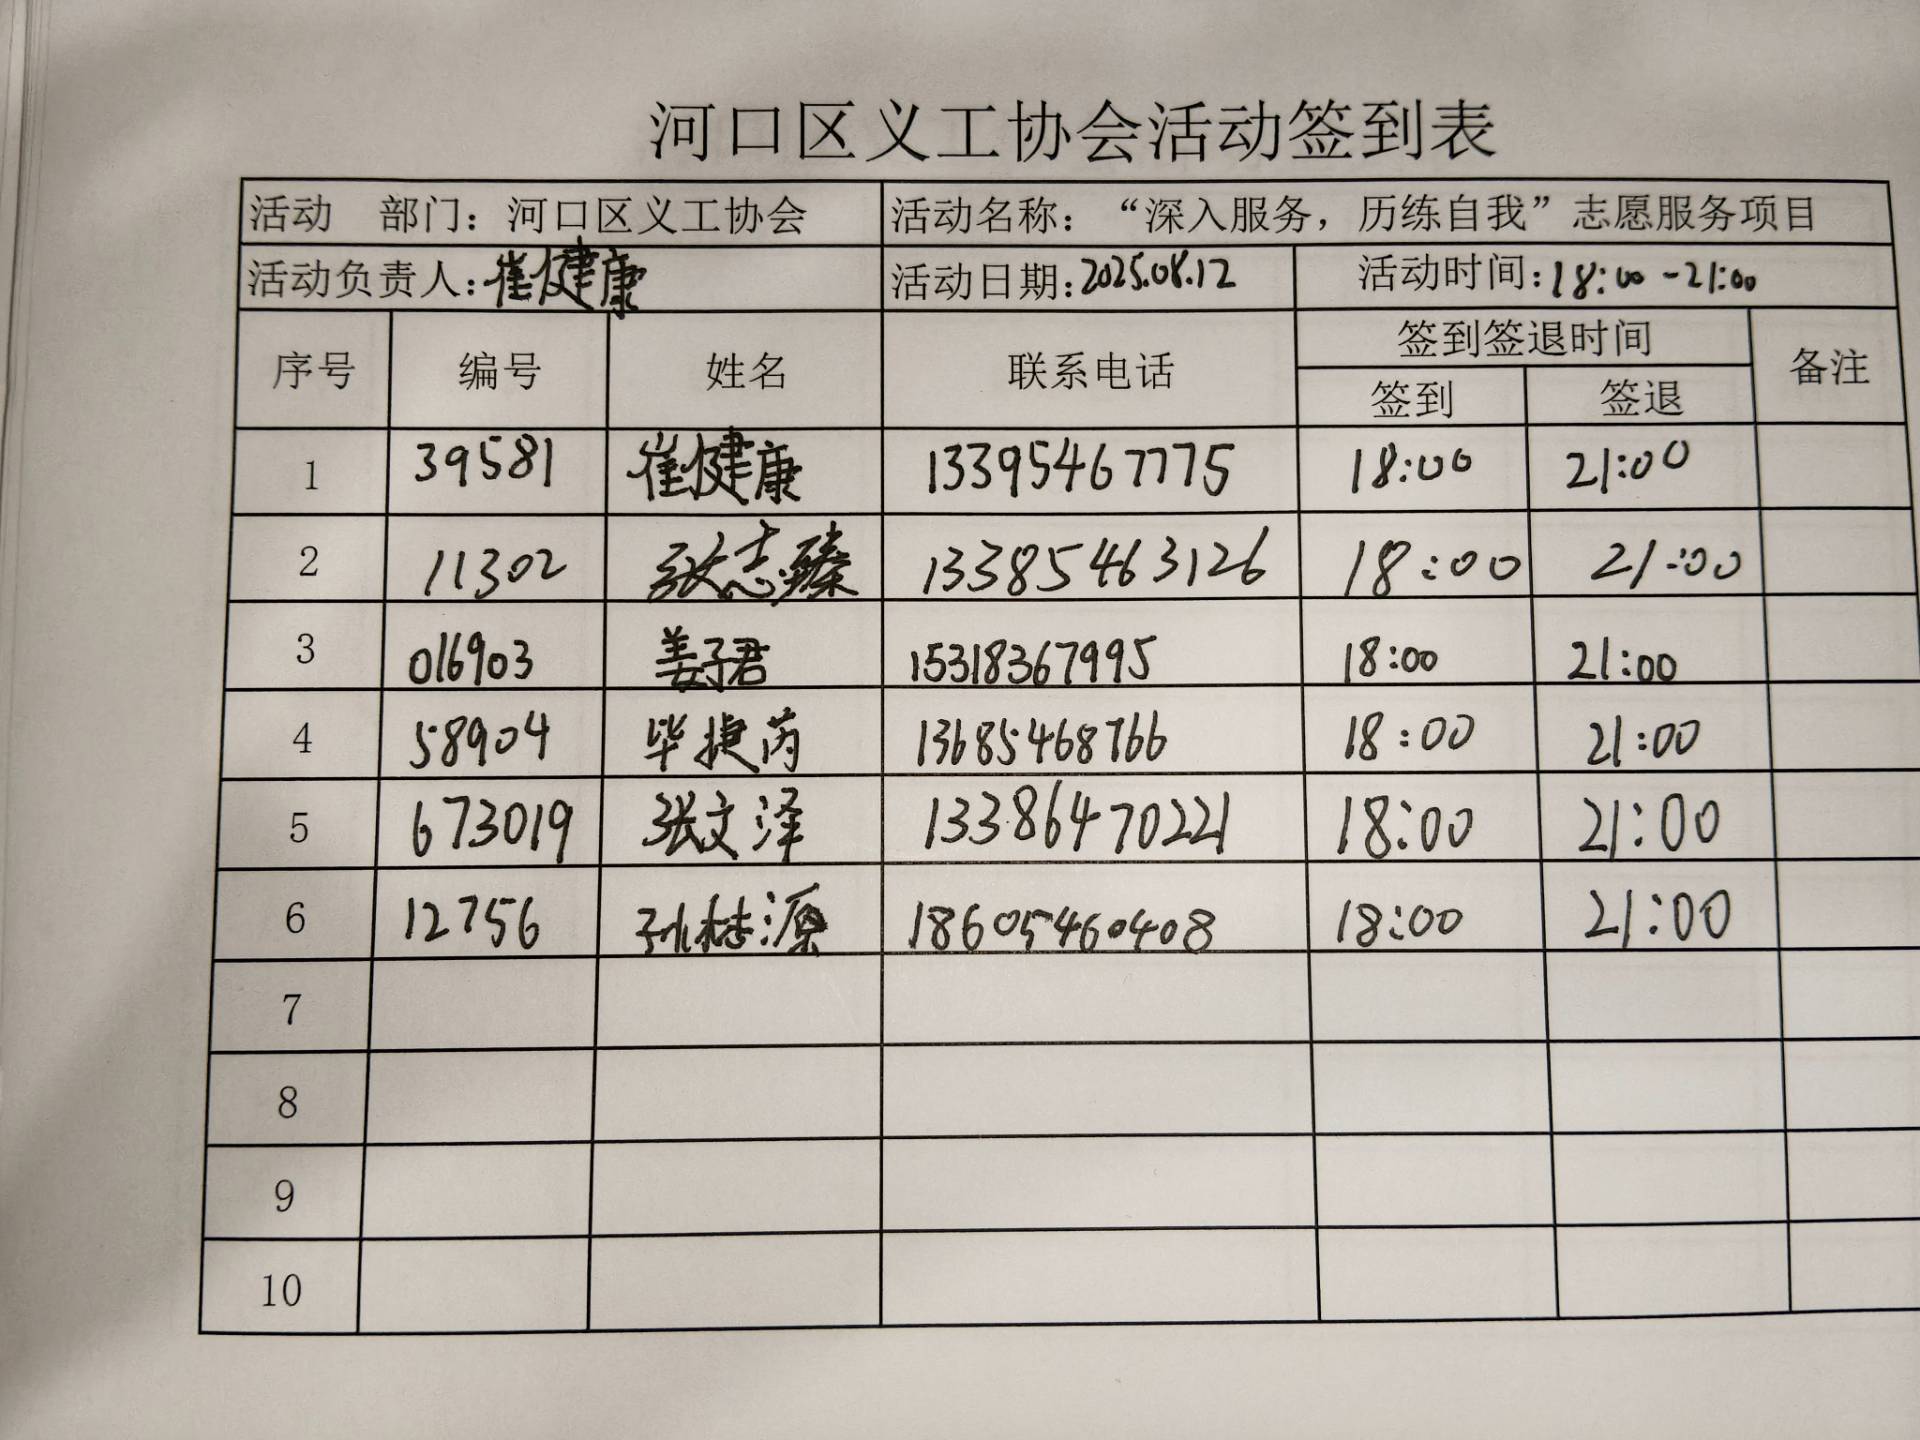 河口区义工协会活动签到表
活动 部门：河口区义工协会 活动名称：“深入服务，历练自我”志愿服务项目
活动负责人：崔健康 活动日期：2025.08.12 活动时间：18:00-21:00
序号 编号 姓名 联系电话 签到签退时间 备注
签到 签退
1 39581 崔健康 13395467775 18:00 21:00
2 11302 张志臻 13385463126 18:00 21:00
3 016903 姜子君 15318367995 18:00 21:00
4 58904 毕捷芮 13685468766 18:00 21:00
5 673019 张文泽 13386470221 18:00 21:00
6 12756 孙 源 18605460408 18:00 21:00
7
8
9
10